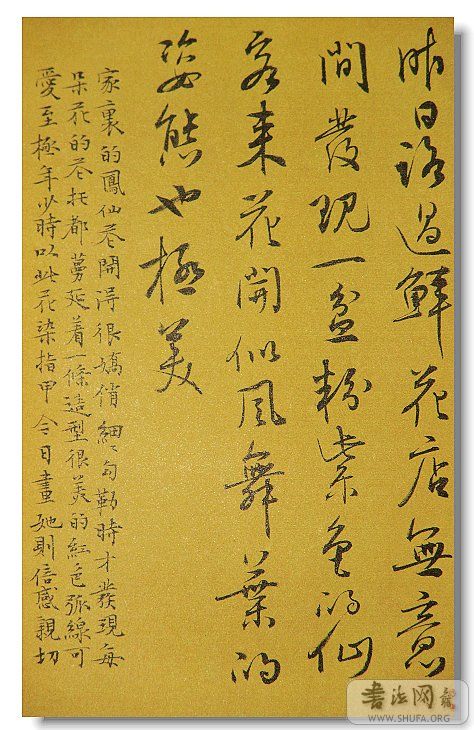 昨日路過鮮花店無意
間發現一盆粉紫色的仙
客来花開似風舞葉的
姿態也極美
家裏的鳳仙花開得很嬌俏細勾勒時才發現每
朵花的花托都蔓延着一條造型很美的紅色弧線可
愛至極年少時以此花染指甲今日畫她則倍感親切
書法网
WWW.SHUFA.ORG